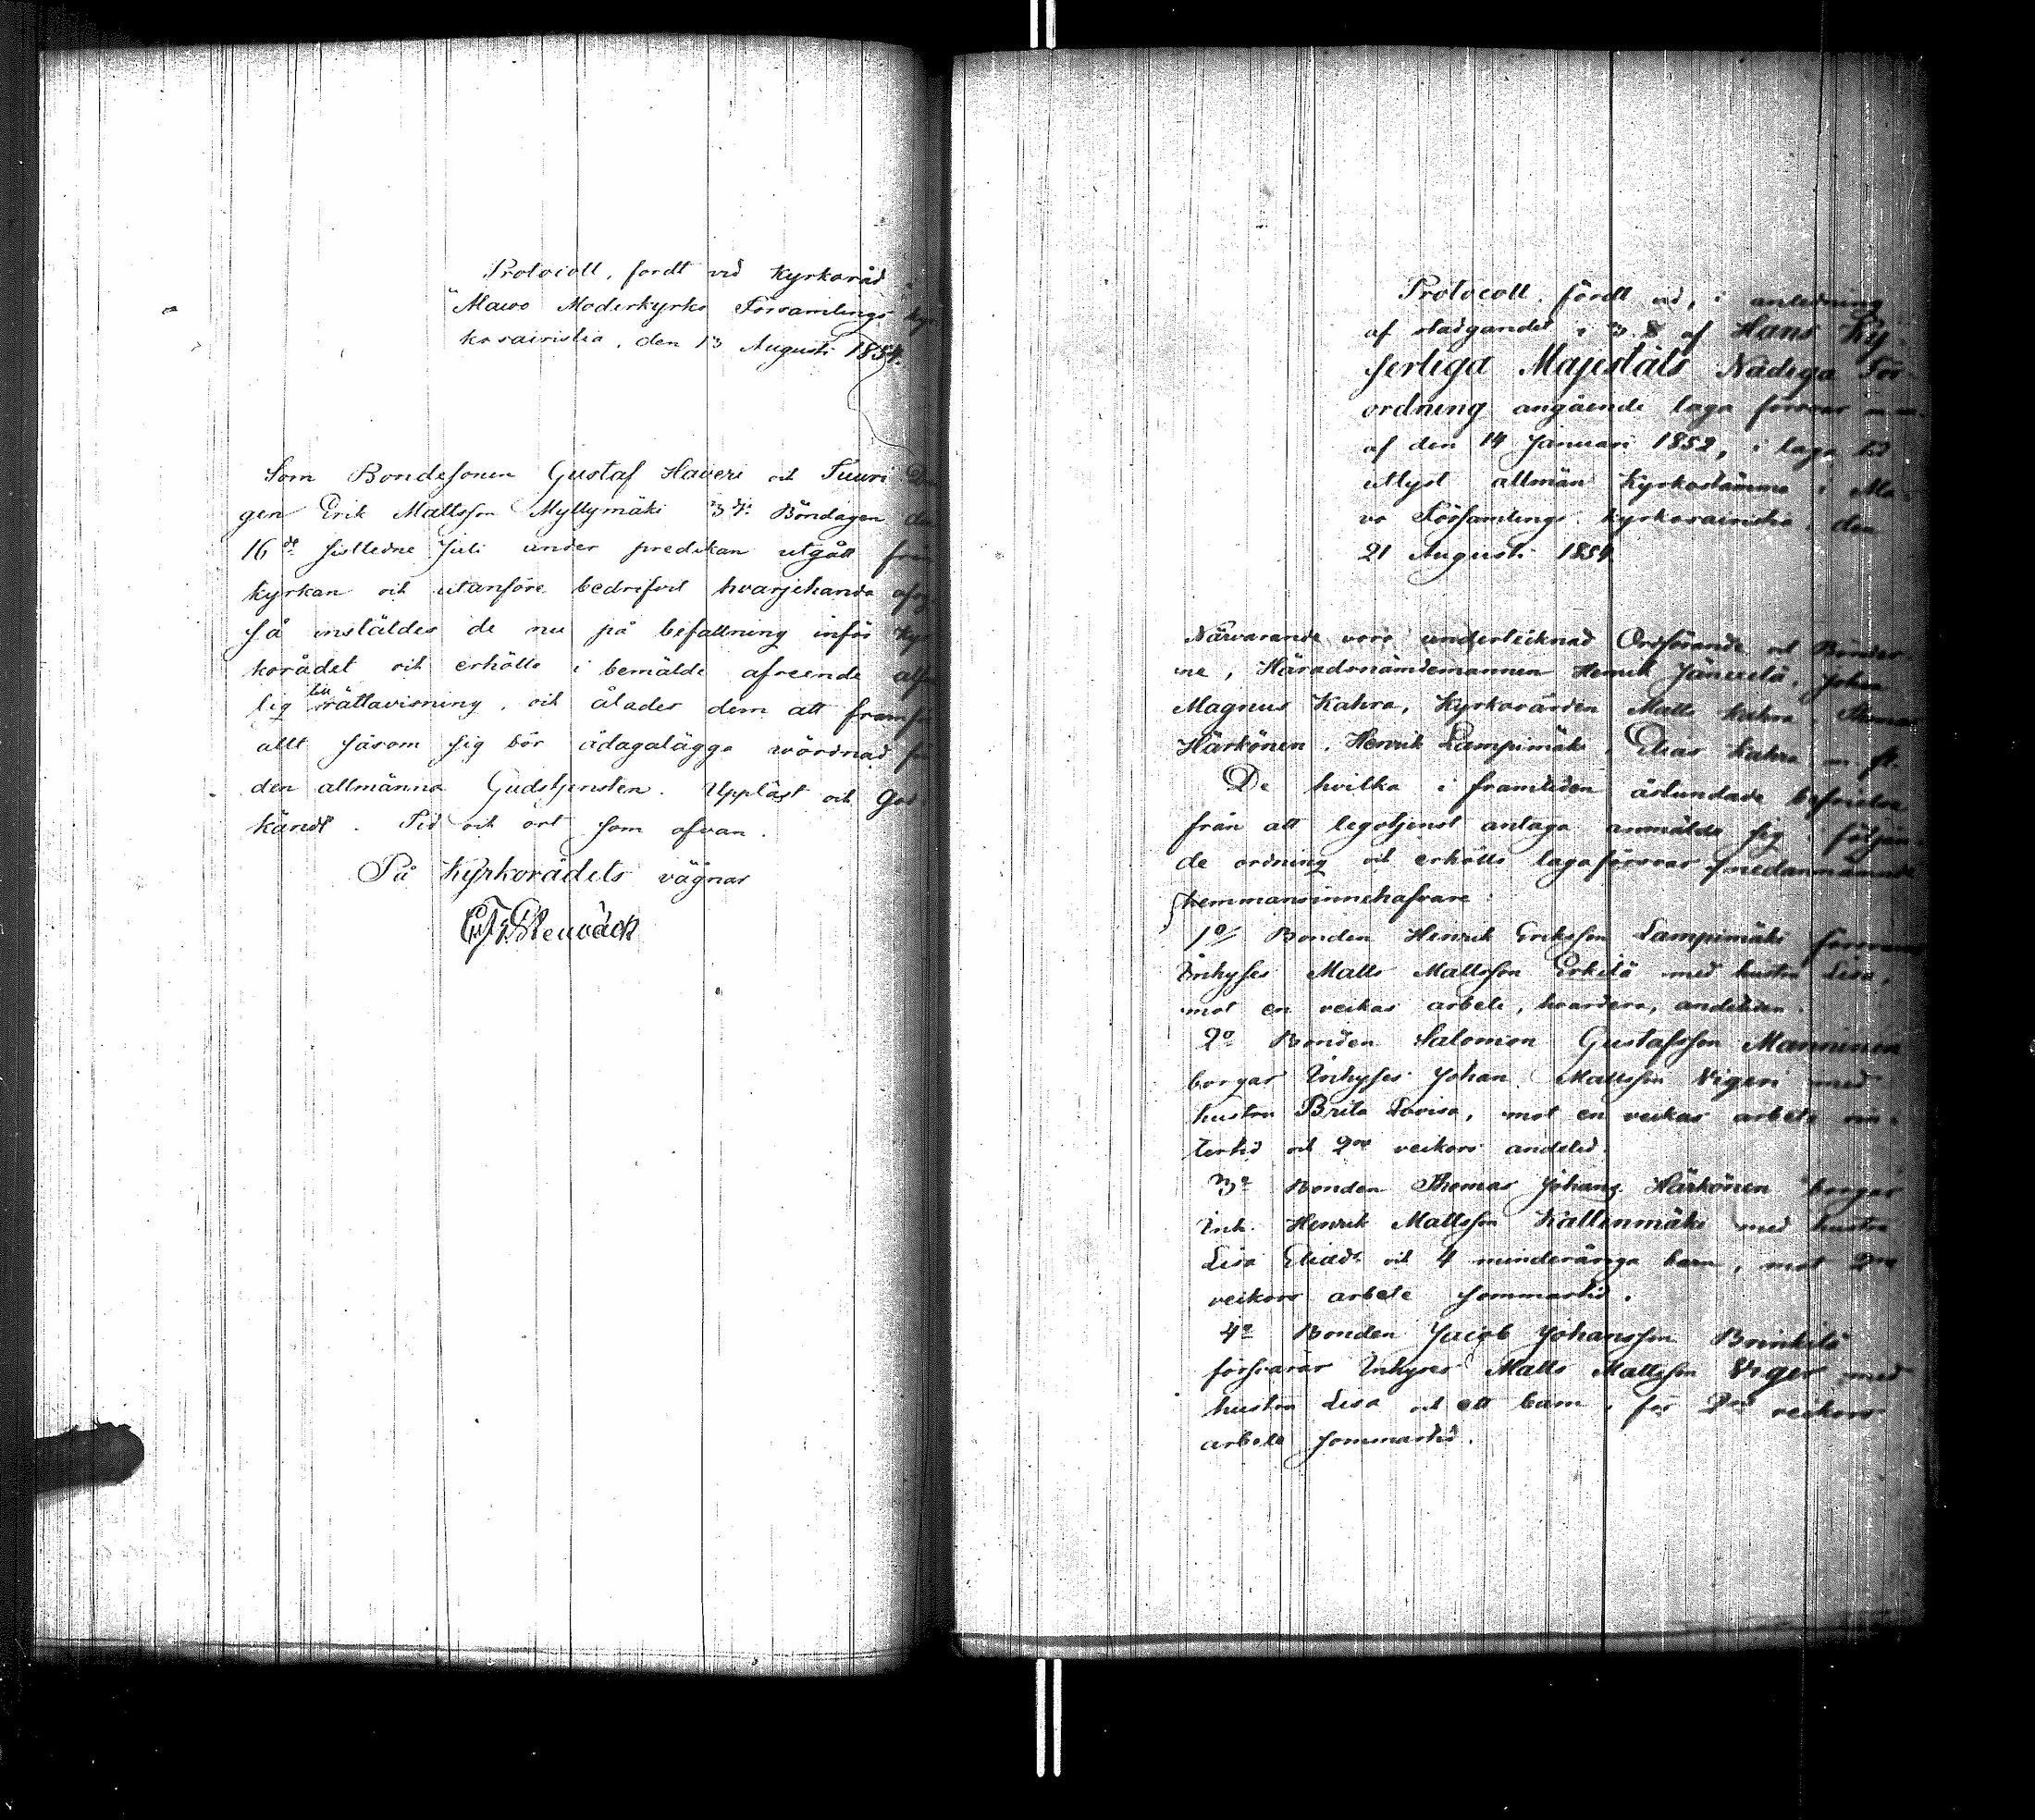 Protocoll, fördt vid Kyrkoråd i
Alavo Moderkyrko Församlings kyr-
kosacristia, den 13 Augusti 1854.
Som Bondesonen Gustaf Haveri och Tuuri
gen Erik Mattsson Myllymäki 3dje Böndagen den
16de sistledne Juli under predikan utgått från
kyrkan och utanföre bedrifvit hvarjehanda
så instäldes de nu på befallning inför Kyr
korådet och erhöllo i bemälde afseende
lig till rättavisning, och ålades dem att framför
allt såsom sig bör ådagalägga wördnad för
den allmänna Gudstjensten. Uppläst och god-
kändt. Tid och ort som ofvan.
På Kyrkorådets vägnar
Stenbäck
Protocoll, fördt vid, i anledning
af stadgandet i 3 § af Hans Kej-
serliga Majestäts Nådiga För-
ordning angående laga försvar m.m.
af den 14 Januari 1852, i laga tid
utlyst allmän Kyrkostämma i Ala-
vo Församlings Kyrkosacristia, den
21 Augusti 1854.
Närvarande voro undertecknad Ordförande och Bönder-
ne, Häradsnämdemannen Henrik Jäneselä, Johan
Magnus Kahra, Kyrkovärden Matts Kahra, Thomas
Härkönen, Henrik Lampimäki, Elias Kahra m. fl.
De hvilka i framtiden åstundade befrielse
från att legotjenst antaga anmälde sig i följan-
de ordning och erhöllo laga försvar af nedannämnde
hemmansinnehafvare:
1o/ Bonden Henrik Eriksson Lampimäki försvarar
Inhyses Matts Mattsson Erkilä med hustru Lisa,
mot en veckas arbete, hvardera, andetiden.
2o Bonden Salomon Gustafsson Manninen
borgar Inhyses Johan Mattsson Vigeri med
hustru Brita Lovisa, mot en veckas arbete vin-
tertid och 2ne veckors andetid.
3o Bonden Thomas Johans. Härkönen borgar
Inh. Henrik Mattsson Kattenmäki med hustru
Lisa Eliadr och 4 minderåriga barn, mot 2ne
veckors arbete sommartid.
4o Bonden Jacob Johansson Brinkilä
försvarar Inhyses Matts Mattsson Viger med
hustru Lisa och ett barn, för 2ne veckors
arbete sommartid.